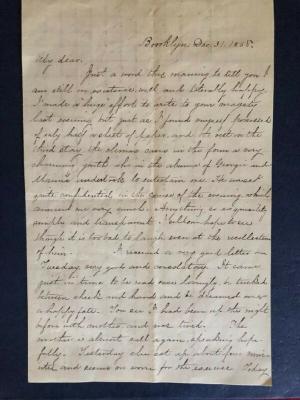 Brooklyn Dec. 31, 1885.
My dear.
Just a word this morning to tell you I
am still in existence, well and tolerably happy.
I made a huge effort to write to your majesty
last evening but just as I found myself possessed
of only half a sheet of paper, and
the in the form a very
charming youth who in the absence of George and
undertook to entertain me. He waxed
quite confidential in the course of the evening which
amused me very much.
simple and transparent. I
though it is too bad to laugh even at the recollection
of him. I received a very good letter on
Tuesday, very good and consolatory. It came
just in time to be read over
between check and hands and be dreamed over
a happy fate. You see I had been up the night
before with mother and was tired. The
mother is almost well again, speaking hope-
fully. Yesterday she sat up about four min-
utes and seems no worse for the exercise. Today